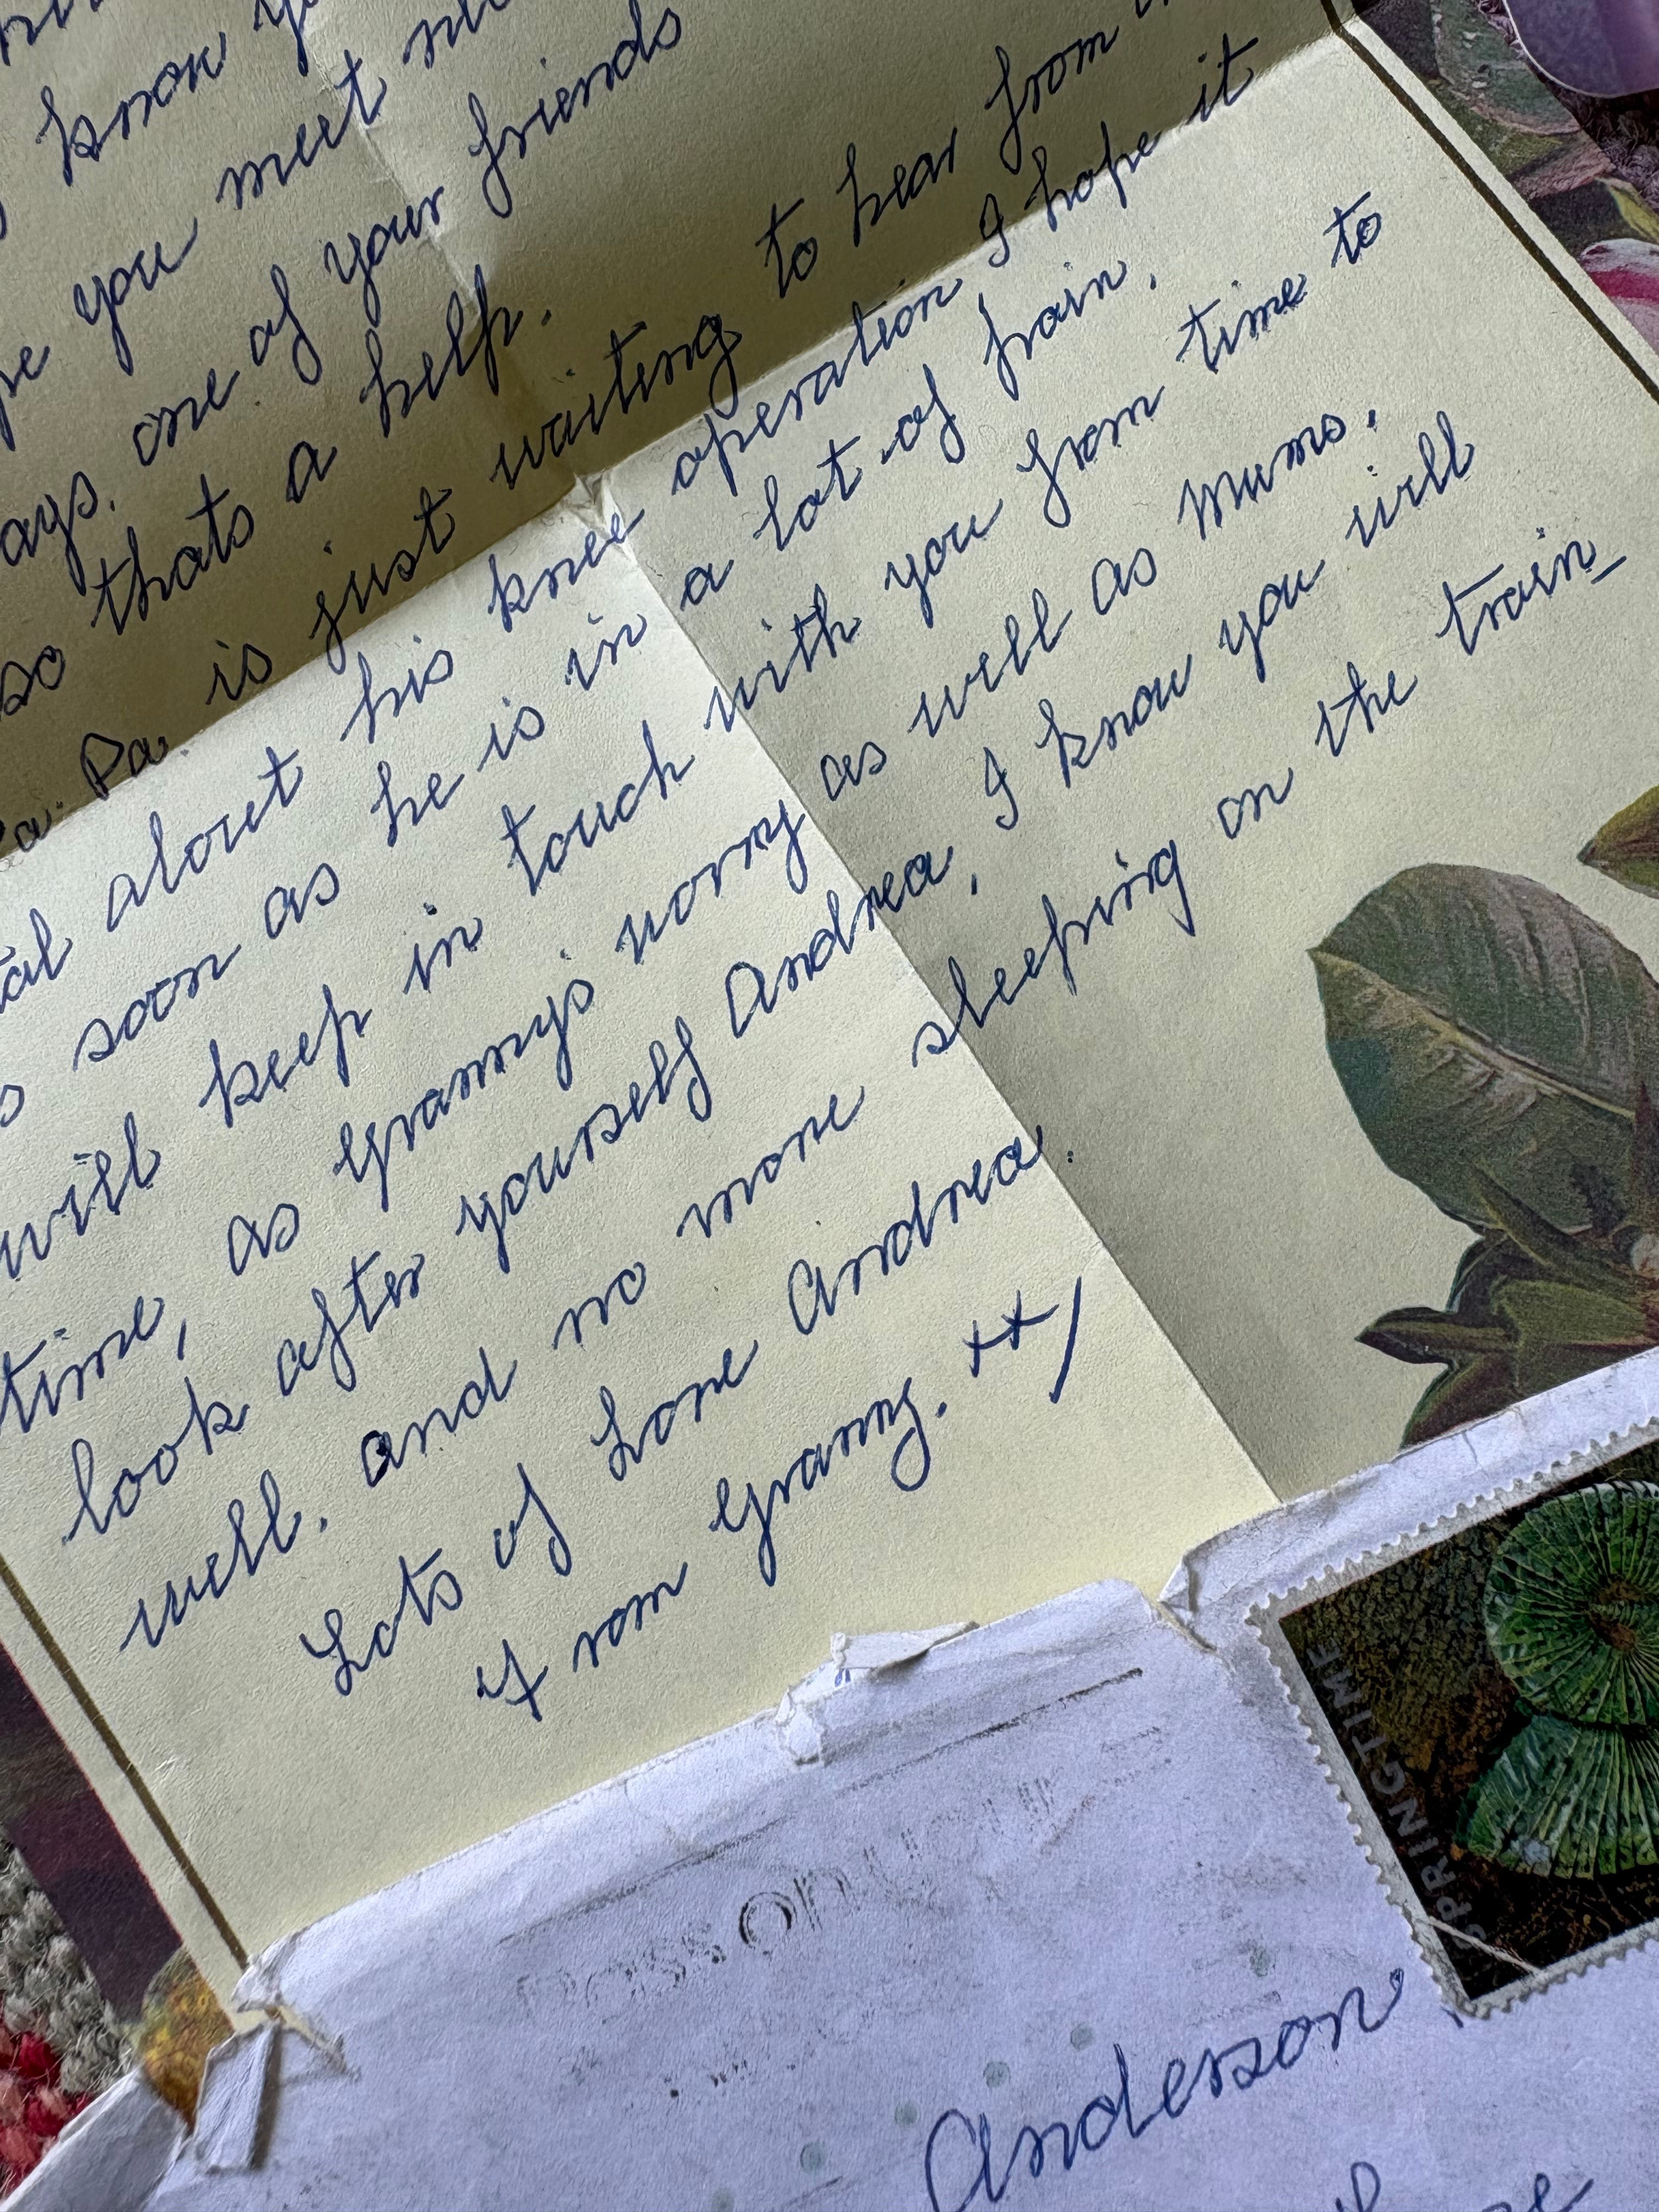 know
you meet
one of your friends
so thats a help.
Pa. is just waiting to hear from
about his knee operation, I hope it
soon as he is in a lot of pain.
will keep in touch with you from time to
time, as Granny's worry as well as mums.
look after yourself Andrea, I know you will
well. and no more sleeping on the train
Lots of Love Andrea.
From Granny. xx/
SPRINGTIME
Anderson